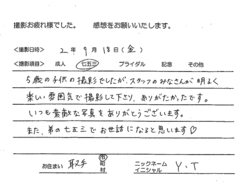 撮影お疲れ様でした。 感想をお願いいたします。
撮影日時 2 年 9 月 18 日(金)
撮影項目 成人 七五三 ブライダル 記念 その他
5歳の子供の撮影でしたが、スタッフのみなさんが明るく
楽しい雰囲気で撮影して下さり、ありがたかったです。
いつも素敵な写真をありがとうございます。
また、弟の七五三でお世話になると思います♡
お住まい 取手 市 町 村 ニックネーム イニシャル Y.T